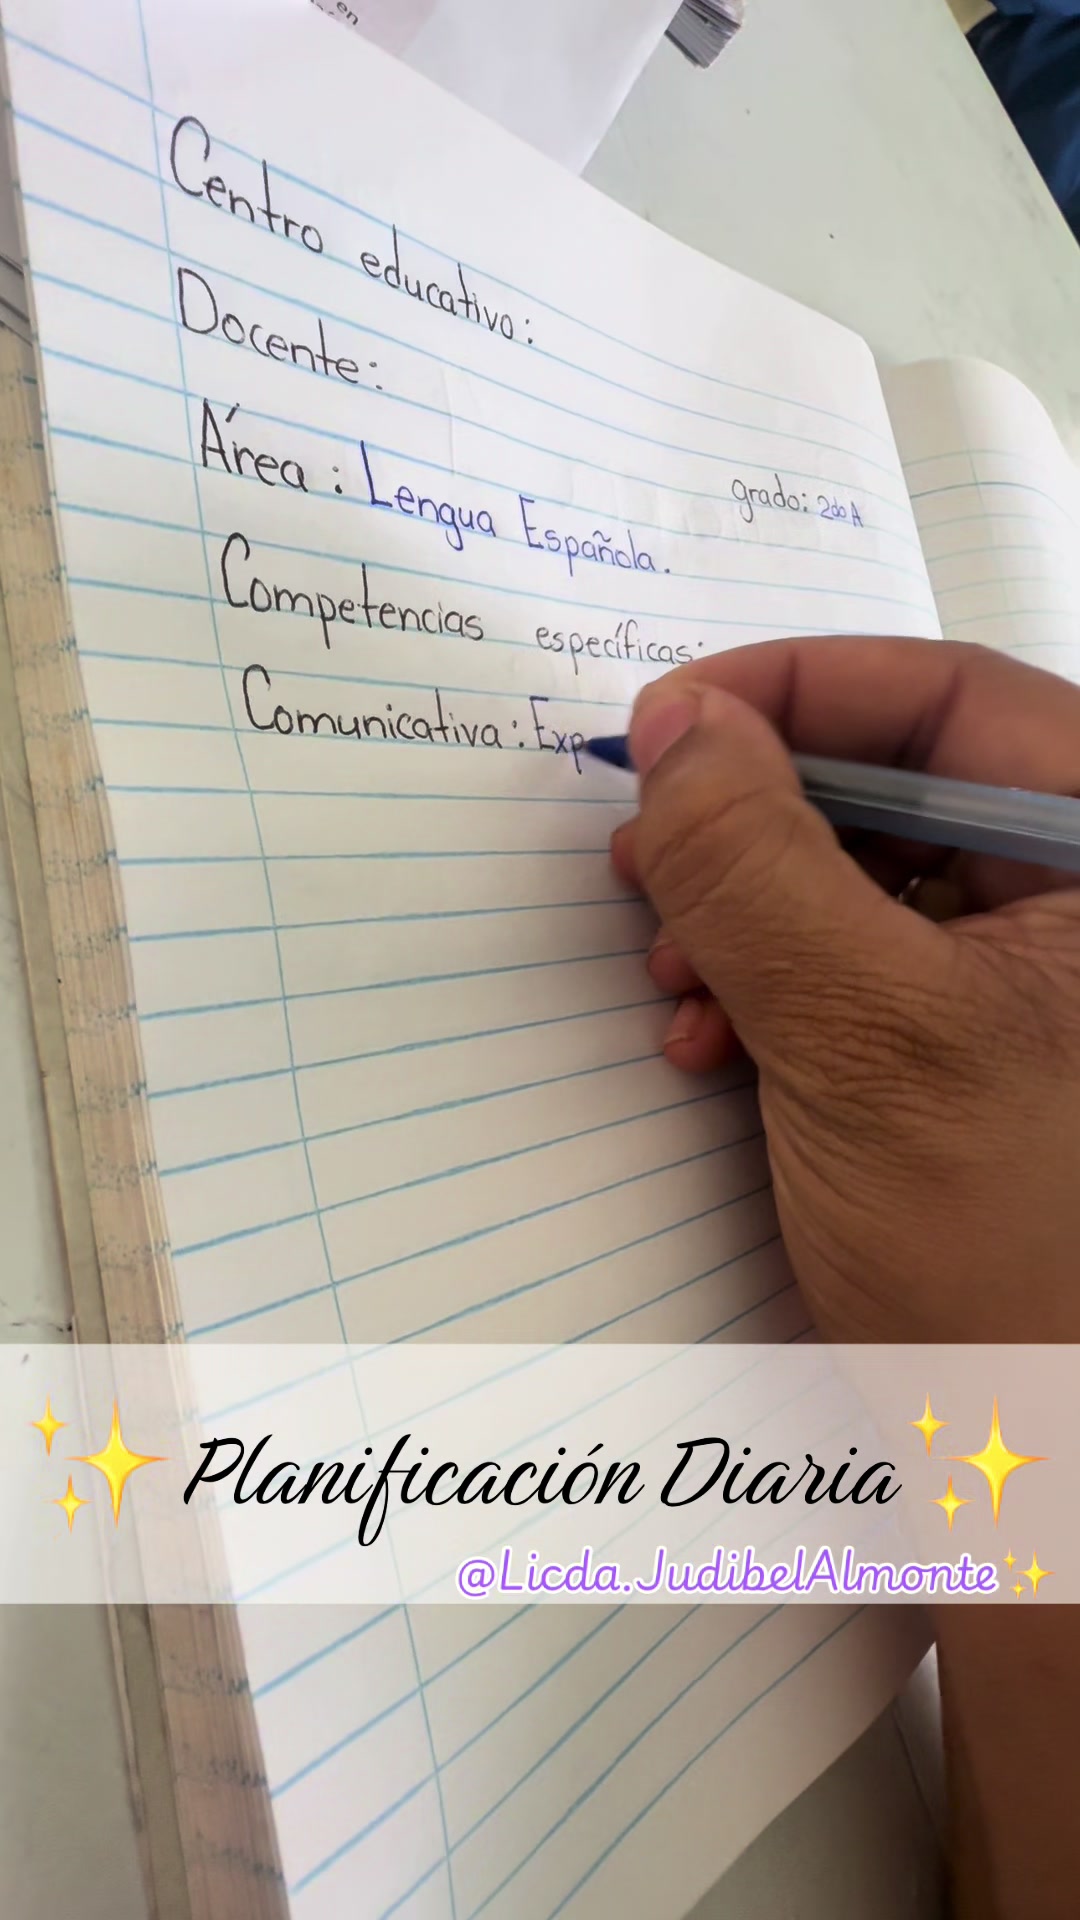 en
Centro educativo:
Docente:
Área: Lengua Española.
grado: 2do A
Competencias específicas:
Comunicativa: Exp
Planificación Diaria
@Licda.JudibelAlmonte